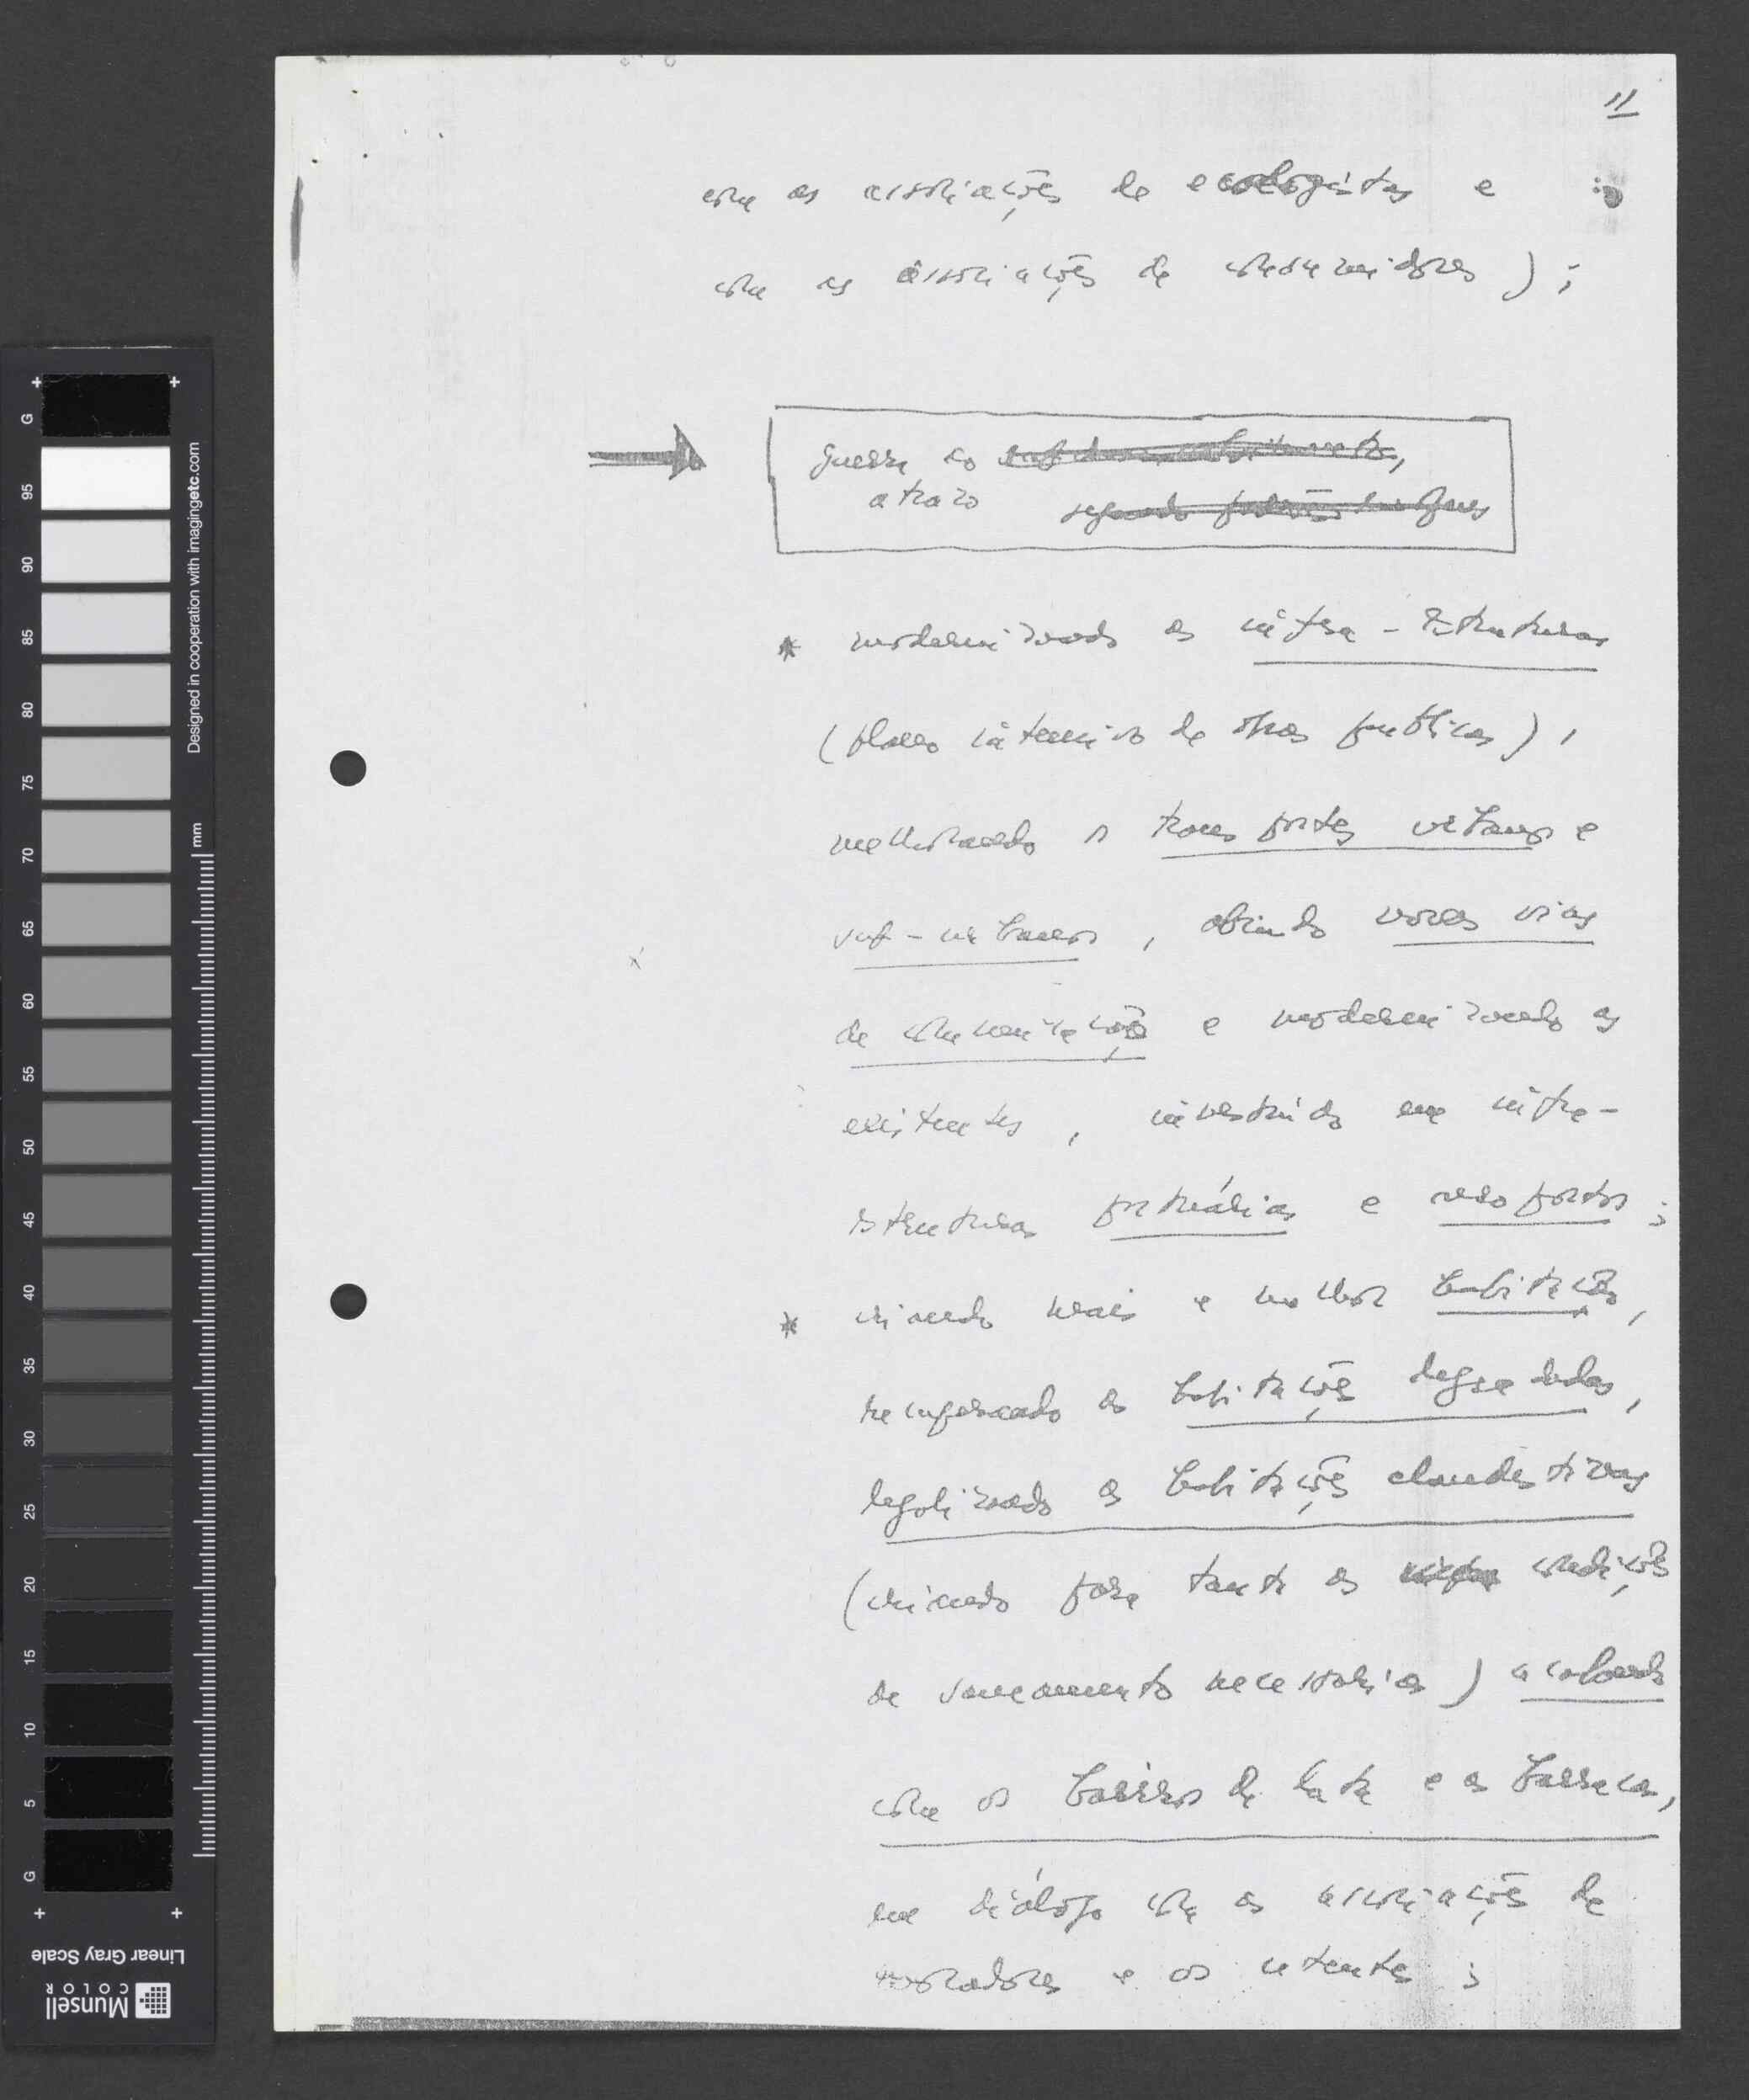 11
com as associações de ecologistas e
com as associações de consumidores);
guerra ao subdesenvolvimento,
atrazo segundo padrões europeus
* modernizando as infra-estruturas
(plano intensivo de obras publicas),
melhorando os transportes urbanos e
sub-urbanos, abrindo novas vias
de comunicação e modernizando as
existentes, investindo em infra-
estruturas portuárias e aeroportos;
* criando mais e melhor habitação,
recuperando as habitações degradadas,
legalizando as habitações clandestinas
(criando para tanto as condições
de saneamento necessárias) acabando
com os bairros de lata e as barracas,
em diálogo com as associações de
moradores e os utentes;
G
95
90
85
80
75
70
65
60
55
50
45
40
35
30
25
20
15
10
5
G
Designed in cooperation with imagingetc.com
mm
Linear Gray Scale
Munsell
COLOR